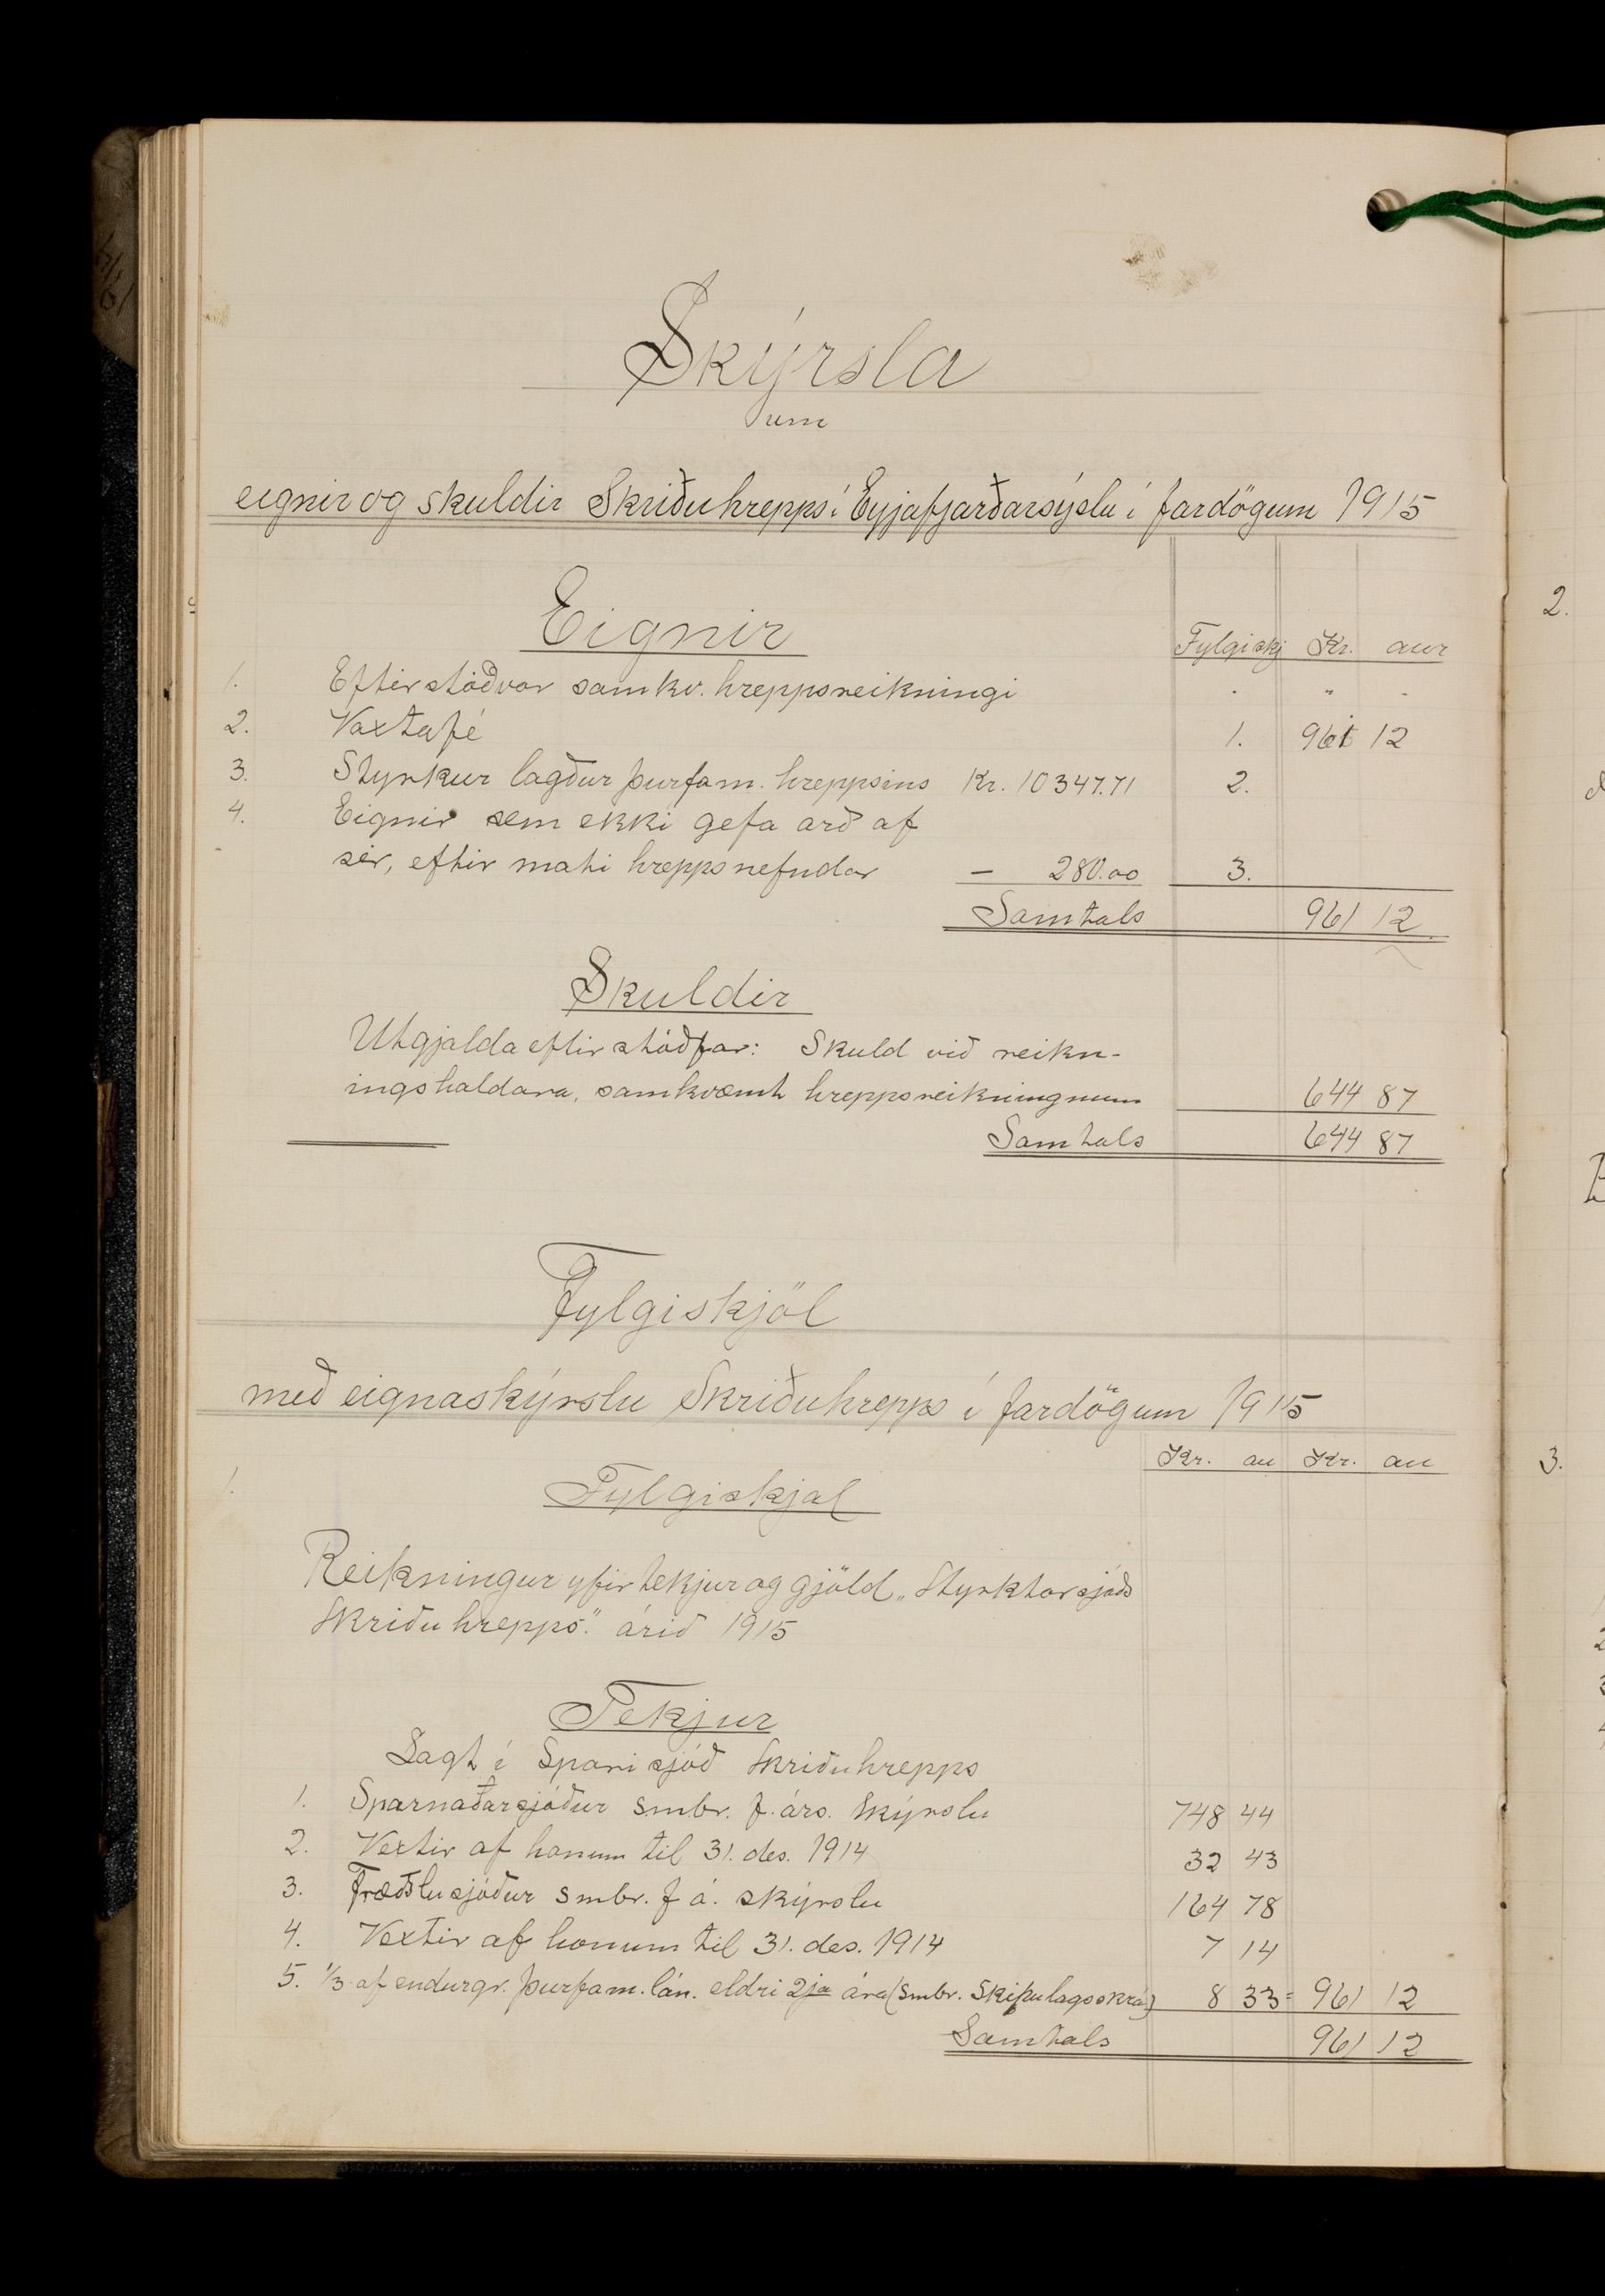 Skýrsla
um
eignir og skuldir Skriðuhrepps í Eyjafjarðarsýslu í fardögum 1915
Eignir
Fylgiskj Kr. aur
1. Eftirstöðvar samkv. hreppsreikningi . " -
2. Vaxtafé 1. 961 12
3. Styrkur lagður þurfam. hreppsins Kr. 10347.71 2.
4. Eignir sem ekki gefa arð af
sér, eftir mati hreppsnefndar — 280.00 3.
Samtals 961 12
Skuldir
Utgjalda eftirstöðvar: Skuld við reikn-
ingshaldara, samkvæmt hreppsreikningnum 644 87
Samtals 644 87
Fylgiskjöl
með eignaskýrslu Skriðuhrepps í fardögum 1915
Kr. au Kr. au
1. Fylgiskjal
Reikningur yfir tekjur og gjöld „Styrktarsjóðs
Skriðuhrepps" árið 1915
Tekjur
Lagt í Sparisjóð Skriðuhrepps
1. Sparnaðarsjóður smbr. f. árs. skýrslu 748 44
2. Vextir af honum til 31. des. 1914 32 43
3. Fræðslusjóður smbr. f á. skýrslu 164 78
4. Vextir af honum til 31. des. 1914 7 14
5. 1/3 af endurgr. þurfam. lán. eldri 2ja ára (smbr. Skipulagsskrá) 8 33 = 961 12
Samtals 961 12
2.
3.